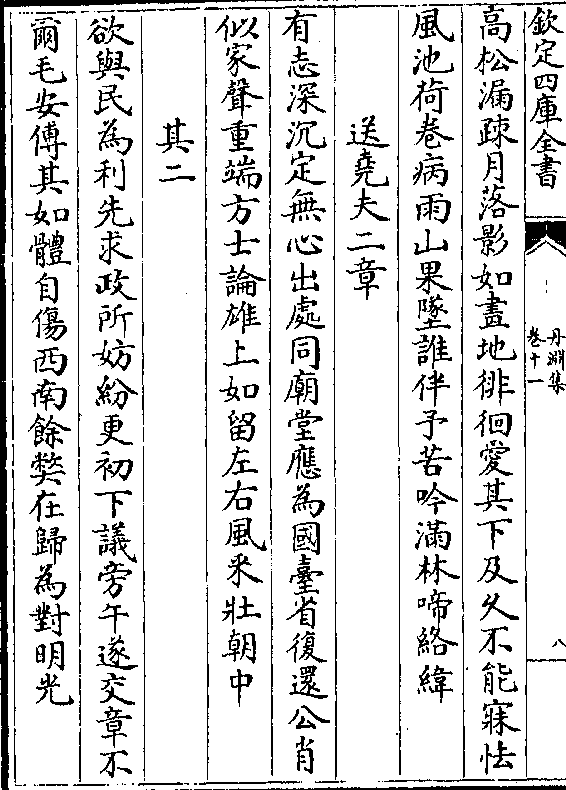 欽定四庫全書
丹淵集
卷十一
八
高松漏疎月落影如畫地徘徊愛其下及久不能寐怯
風池荷卷病雨山果墜誰伴予苦吟滿林啼絡緯
送堯夫二章
有志深沉定無心出處同廟堂應為國臺省復還公肖
似家聲重端方士論雄上如留左右風采壯朝中
其二
欲與民為利先求政所妨紛更初下議旁午遂交章不
爾毛安傅其如體自傷西南餘弊在歸為對明光